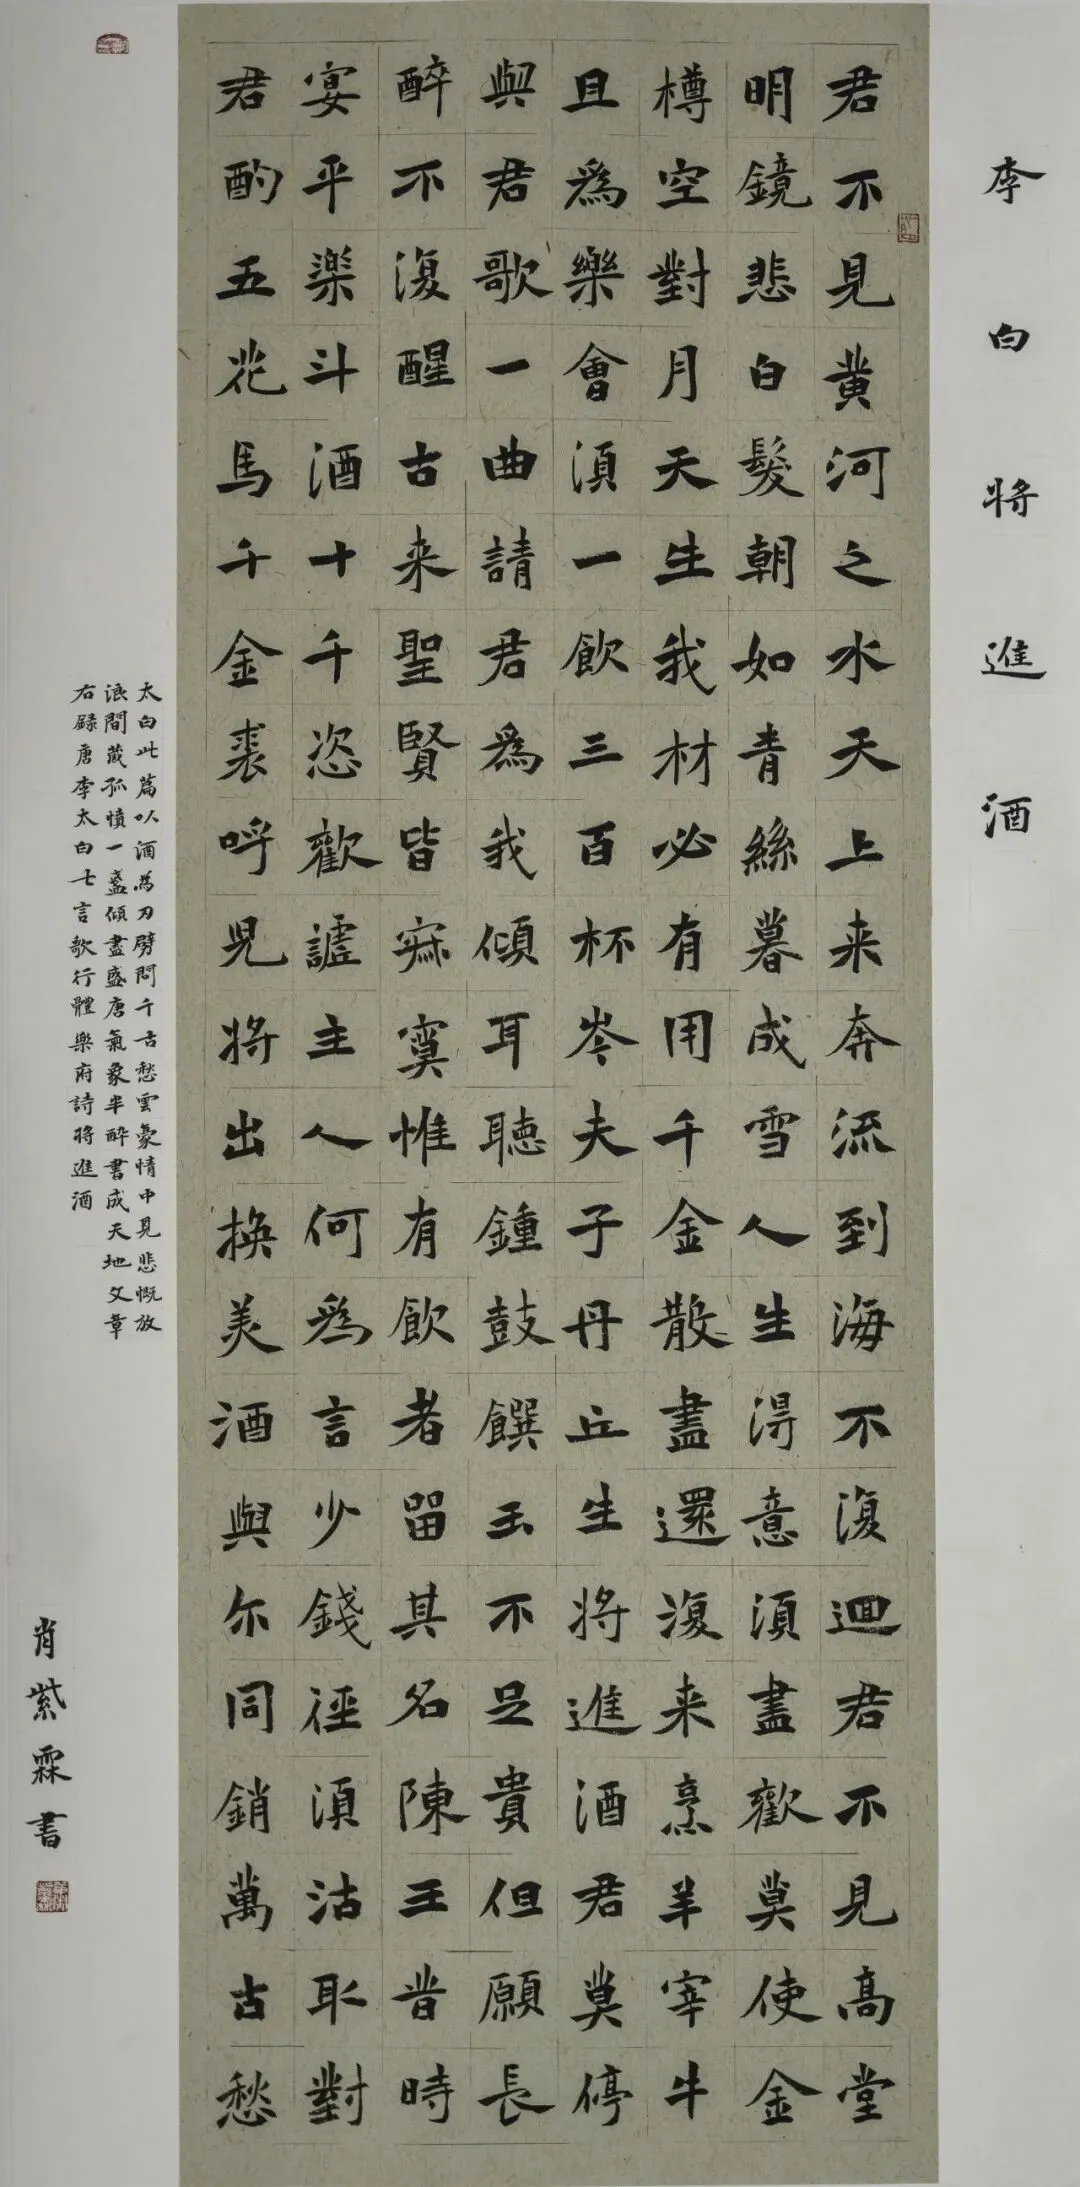 李白將進酒
君不見黃河之水天上来奔流到海不復迴君不見高堂
明鏡悲白髮朝如青絲暮成雪人生得意須盡歡莫使金
樽空對月天生我材必有用千金散盡還復来烹羊宰牛
且爲樂會須一飲三百杯岑夫子丹丘生將進酒君莫停
與君歌一曲請君爲我傾耳聽鍾鼓饌玉不足貴但願長
醉不復醒古来聖賢皆寂寞惟有飲者留其名陳王昔時
宴平樂斗酒十千恣歡謔主人何爲言少錢徑須沽取對
君酌五花馬千金裘呼兒將出換美酒與尔同銷萬古愁
太白此篇以酒為刀劈問千古愁雲豪情中見悲慨放
浪間藏孤憤一盞傾盡盛唐氣象半醉書成天地文章
右録唐李太白七言歌行體樂府詩將進酒
肖紫霖書